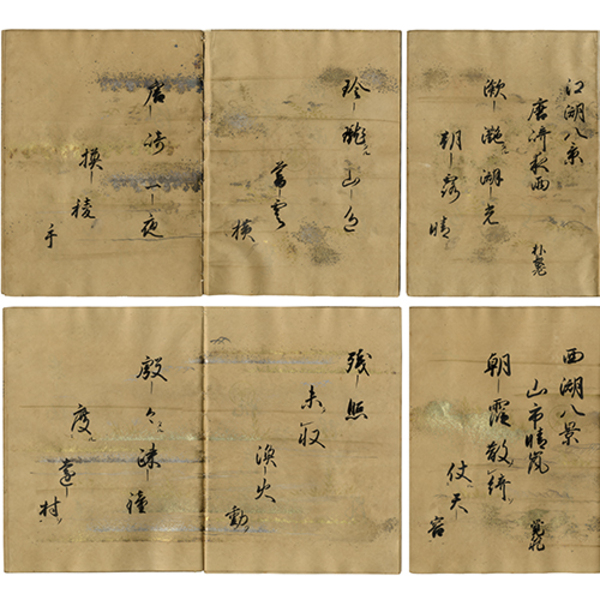 江湖八景
唐崎夜雨
瀲灔湖光
朝露
晴
玲瓏山色
暮雲
横
唐崎一夜
換
稜
手
西湖八景
山市晴嵐
朝霞散綺
仗天
容
残照
未収
漁火
動
殷々疎鐘
度
遠村